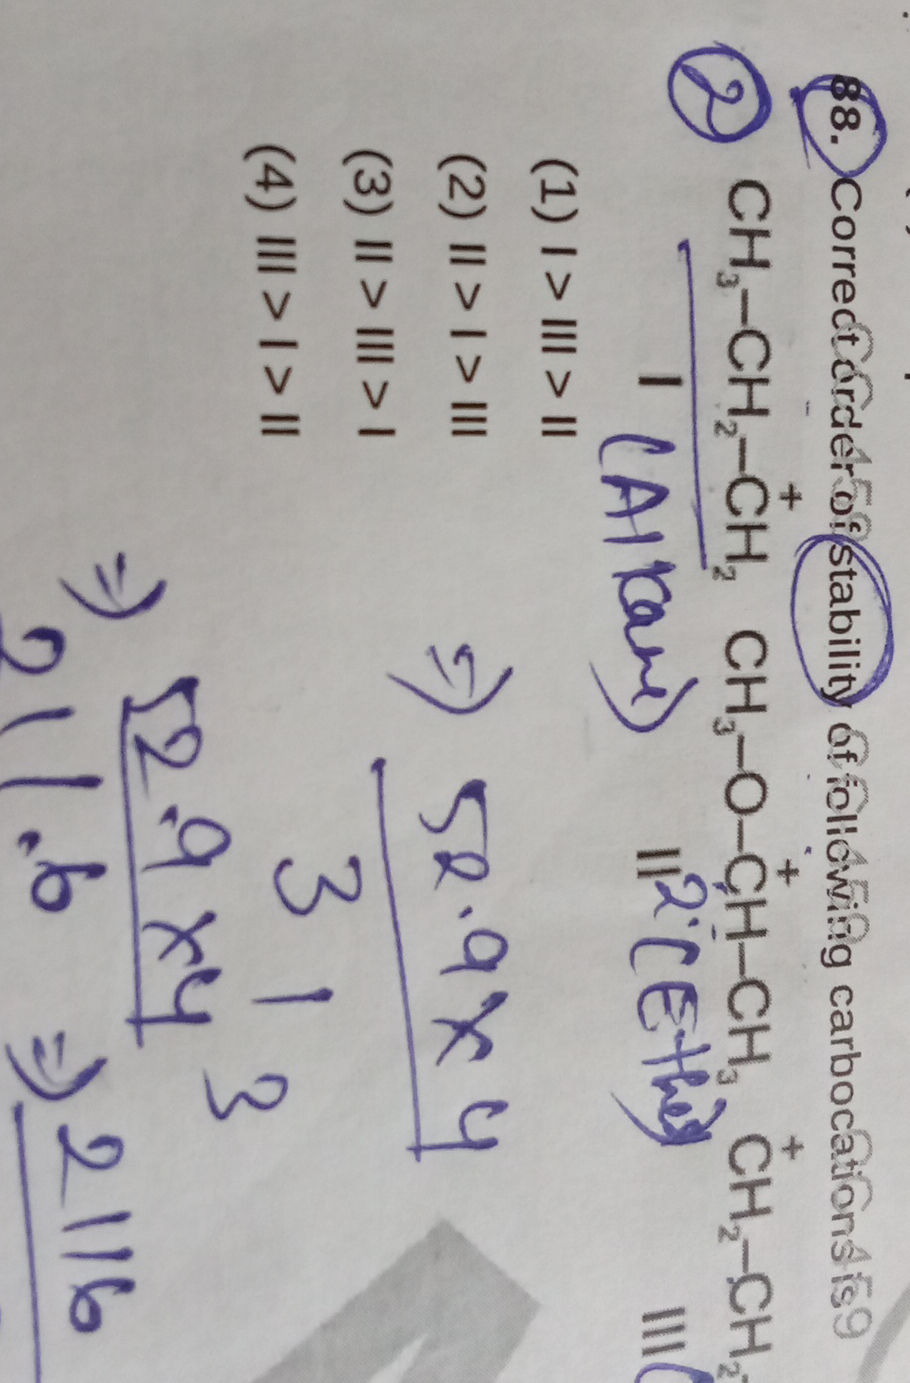 88. Correct order of stability of following carbocations is
② CH₃–CH₂–C⁺H₂ CH₃–O–C⁺H–CH₃ C⁺H₂–CH₂–
I (Alkane) II 2° (Ether) III (
(1) I > III > II
(2) II > I > III
(3) II > III > I
(4) III > I > II
⇒ 52.9 x 4
3 1 3
⇒ 52.9 x 4
⇒ 2116
211.6